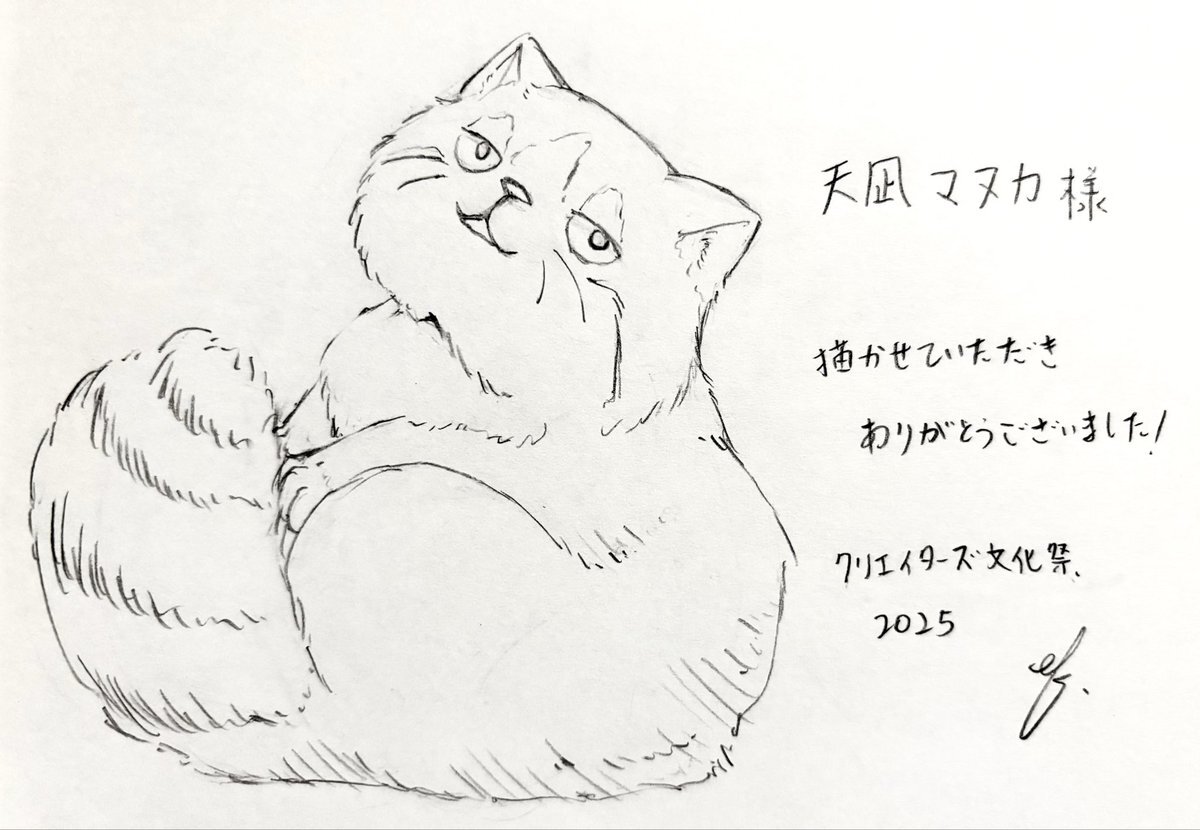 天凪マヌカ様
描かせていただき
ありがとうございました!
クリエイターズ文化祭、
2025